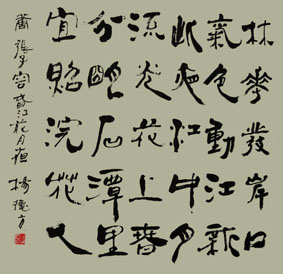 林華發岸口
氣色動江新
此夜江中月
流光花上春
分明石潭里
宜照浣花人
張子容春江花月夜 楊